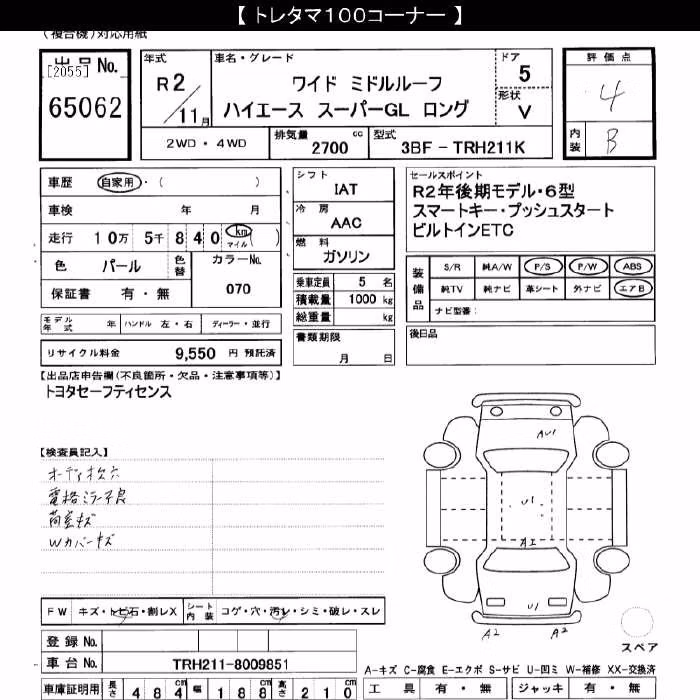 【 トレタマ100コーナー 】
(複合機)対応用紙
出品No.
[2055]
65062
年式
R2/11月
車名・グレード
ワイド ミドルルーフ
ハイエース スーパーGL ロング
ドア
5
形状
V
評価点
4
内装
B
2WD・4WD
排気量
2700 cc
型式
3BF - TRH211K
車歴 自家用・( )
車検 年 月
走行 10万 5千 840 km マイル ( )
色 パール 色替
保証書 有・無
カラーNo.
070
シフト
IAT
冷房
AAC
燃料
ガソリン
乗車定員 5 名
積載量 1000 kg
総重量 kg
セールスポイント
R2年後期モデル・6型
スマートキー・プッシュスタート
ビルトインETC
装備品
S/R 純A/W P/S P/W ABS
純TV 純ナビ 革シート 外ナビ エアB
ナビ型番:
モデル年式 年 ハンドル 左・右 ディーラー・並行
リサイクル料金 9,550 円 預託済
書類期限
月 日
後日品
【出品店申告欄(不良箇所・欠品・注意事項等)】
トヨタセーフティセンス
【検査員記入】
オーディオ欠穴
電格ミラー不良
荷室キズ
Wカバーキズ
AU1
U1
A1
U1
A2
A2
スペア
FW キズ・トビ石・割レX シート内装 コゲ・穴・汚レ・シミ・破レ・スレ
登録No.
車台No. TRH211-8009851
車庫証明用 長さ 484 cm 幅 188 cm 高さ 210 cm
A-キズ C-腐食 E-エクボ S-サビ U-凹ミ W-補修 XX-交換済
工具 有・無 ジャッキ 有・無